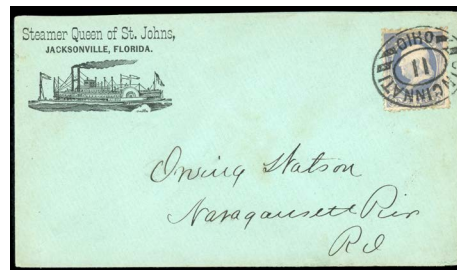 Steamer Queen of St. Johns,
JACKSONVILLE, FLORIDA.
CINCINNATI OHIO
11
Watson
Naragansett Pier
R I